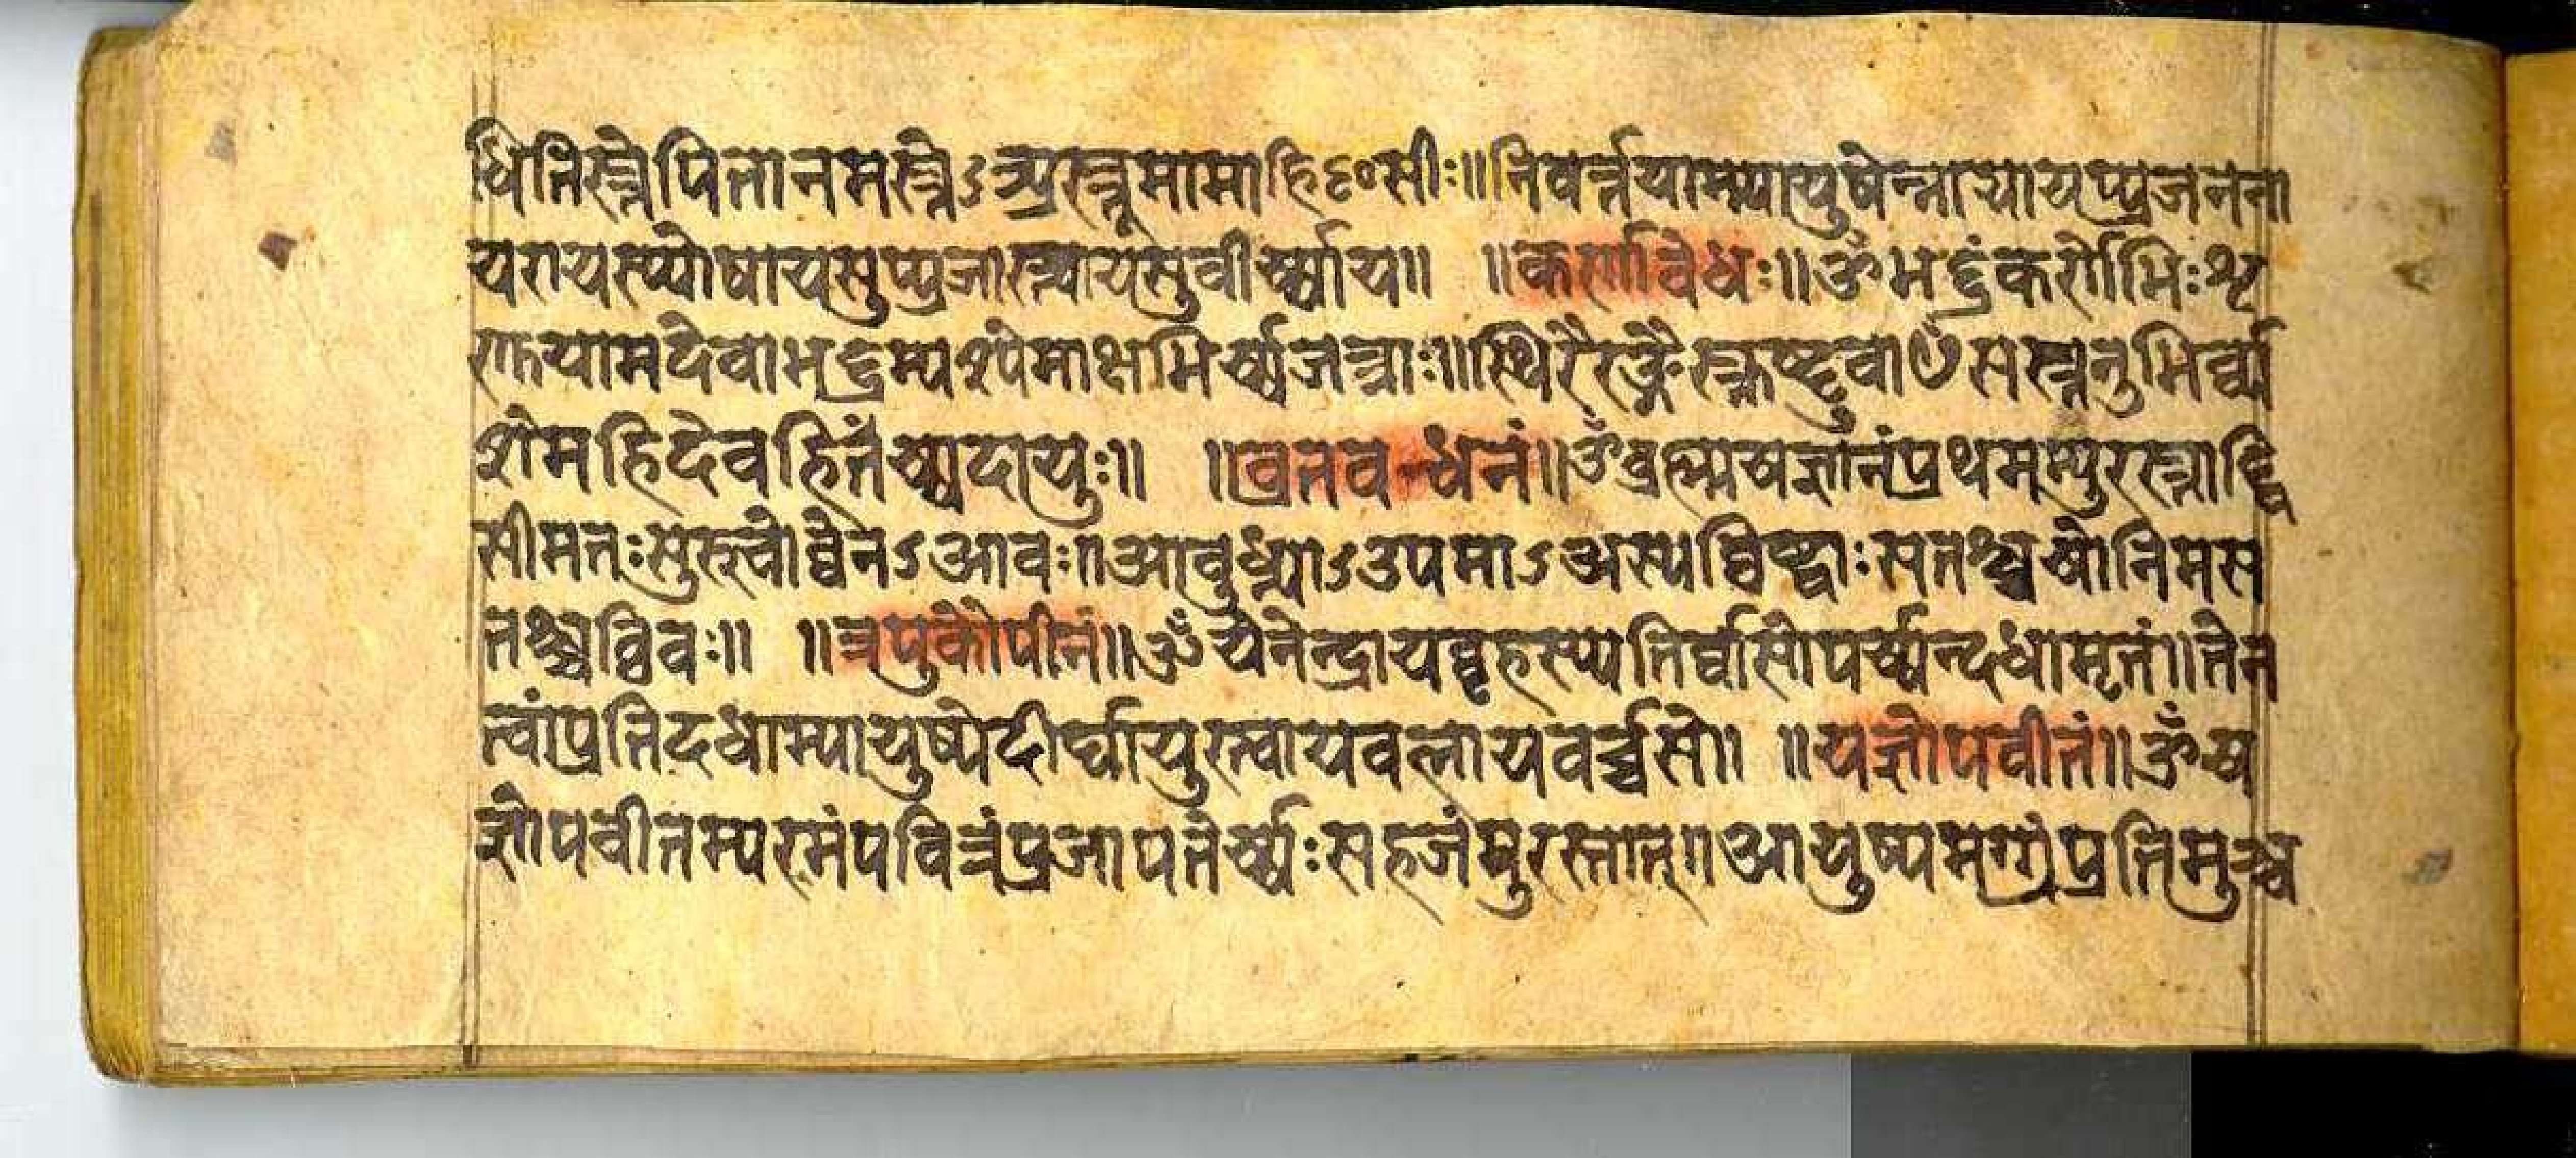 धितिस्त्तेपितानमस्त्तेऽअस्त्तुमामाहिᳬसीः॥निवर्त्तयाम्म्यायुषेन्नाद्यायप्प्रजनना
यरायस्प्पोषायसुप्प्रजास्त्वायसुवीर्य्याय॥ ॥कर्णवेधः॥ॐभद्द्रंकर्णेभिःशृ
णुयामदेवाभद्द्रम्पश्येमाक्षभिर्य्यजत्राः॥स्थिरैरङ्गैस्त्तुष्टुवाᳬसस्त्तनुभिर्व्य
शेमहिदेवहितंय्यदायुः॥ ॥व्रतबन्धनं॥ॐब्रह्मयज्ञानंप्रथमम्पुरस्त्ताद्वि
सीमतःसुरुचोव्वेनऽआवः॥आबुध्न्याऽउपमाऽअस्यव्विष्ठाःसतश्च्चयोनिमस
तश्च्चव्विवः॥ ॥त्रपुकौपीनं॥ॐयेनेन्द्रायबृहस्प्पतिर्व्वासोपर्य्यन्दधामृतं॥तेन
त्वांप्रतिदधाम्यायुष्येदीर्घायुरत्वायवलायवर्च्चसे॥ ॥यज्ञोपवीतं॥ॐय
ज्ञोपवीतम्परमंपवित्रंप्रजापतेर्य्यःसहजंपुरस्तात्॥आयुष्यमग्ग्रंप्रतिमुञ्च